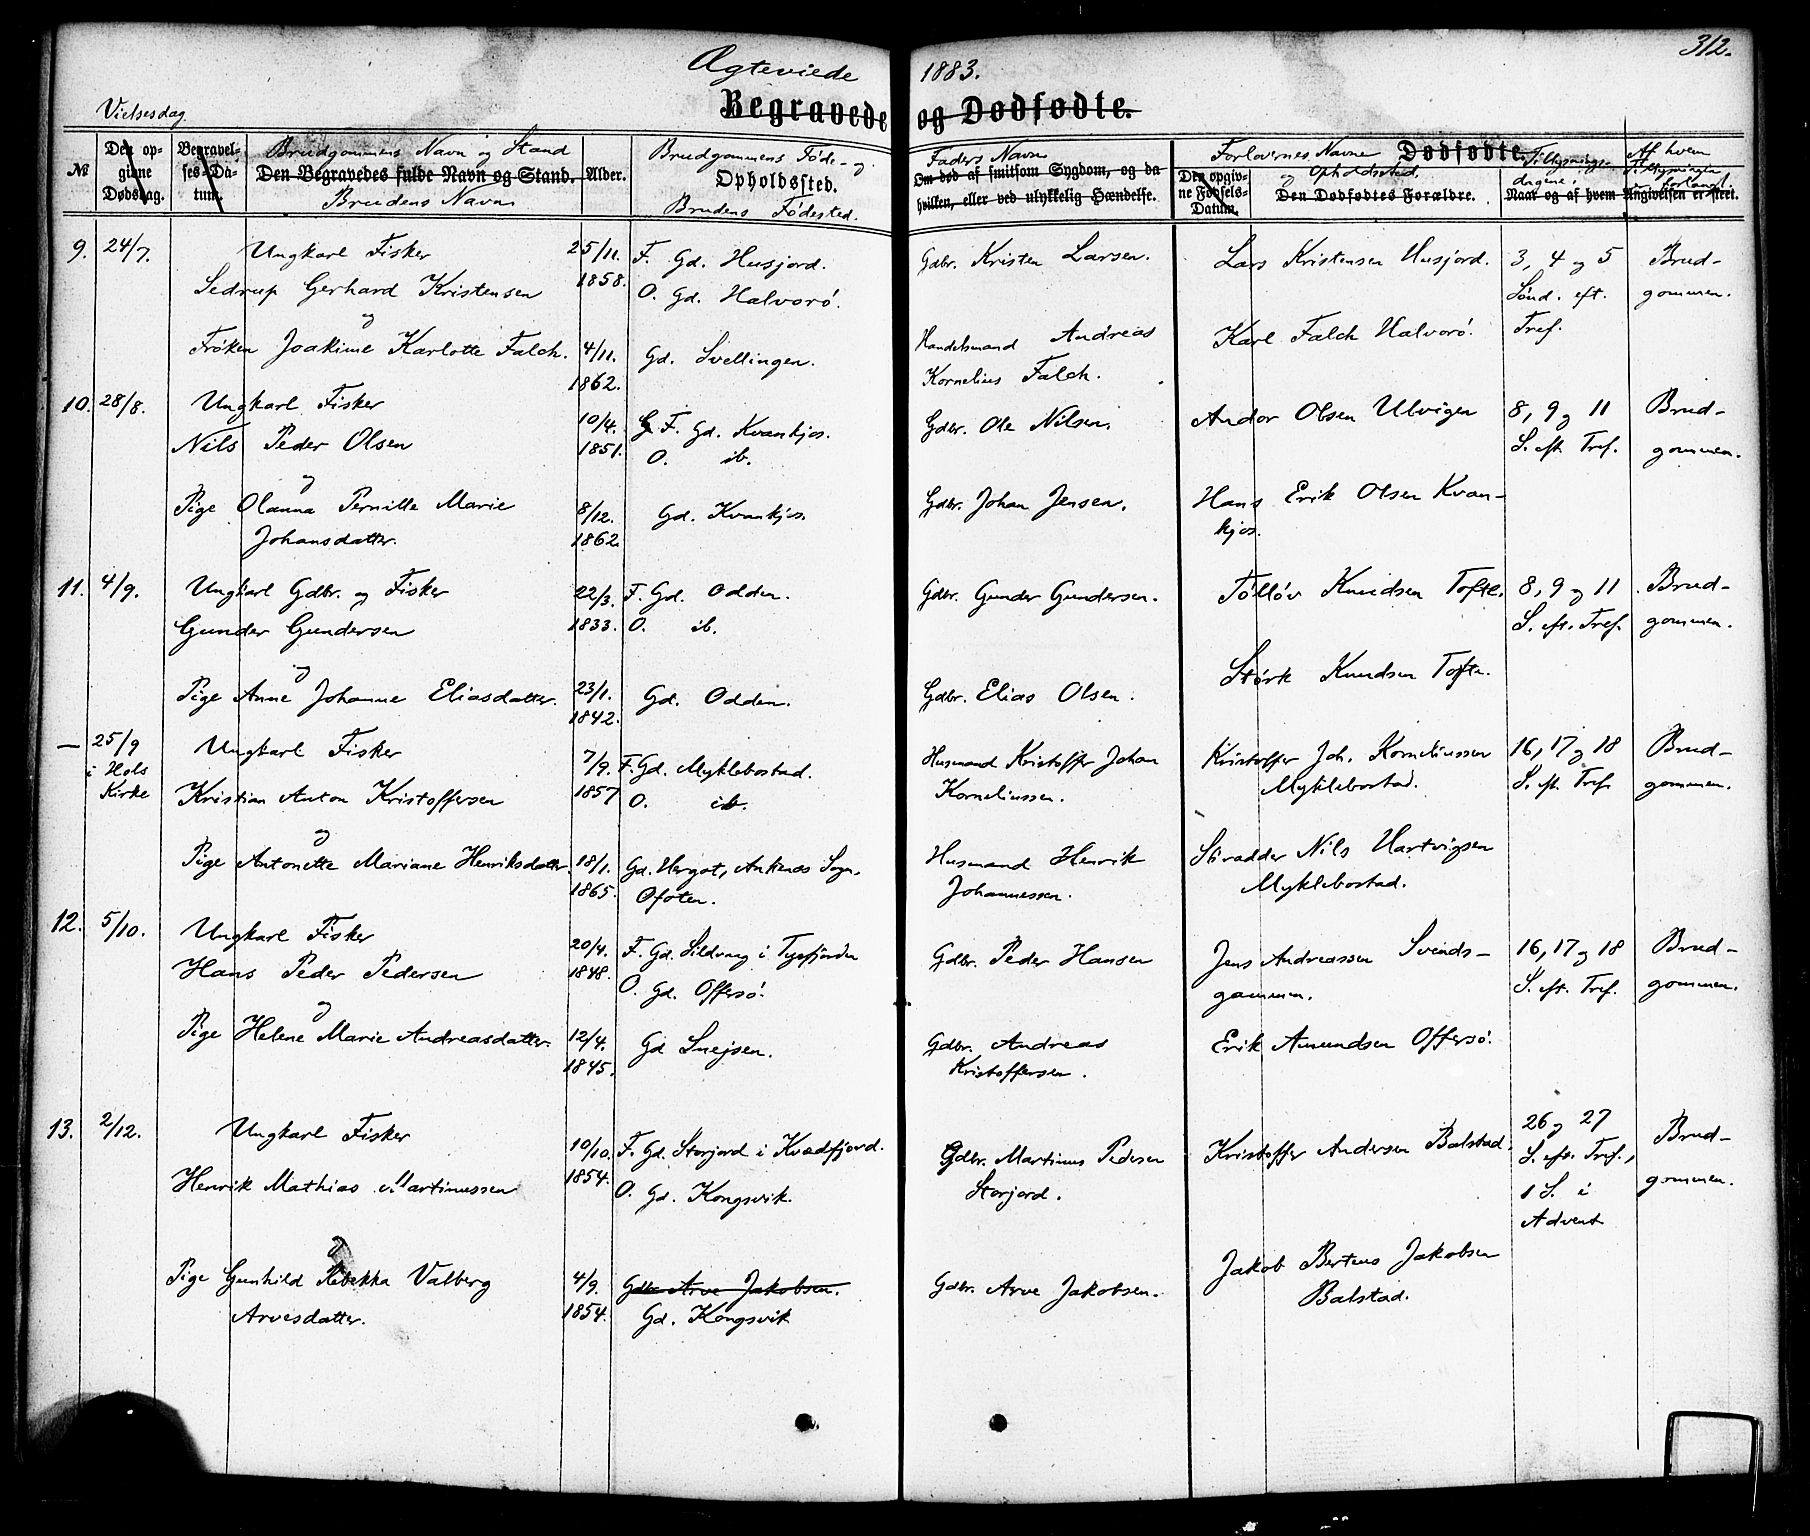 312.
Ægteviede 1883.
Begravede og Dødfødte.
Vielsesdag.
№
Den op-
givne
Dødsdag.
Begravel-
ses-Da-
tum.
Brudgommens Navn og Stand
Den Begravedes fulde Navn og Stand.
Brudens Navn
Alder.
Brudgommens Føde- og
Opholdssted.
Brudens Fødested.
Faders Navn
Om død af smitsom Sygdom, og da
hvilken, eller ved ulykkelig Hændelse.
Den opgiv-
ne Fødsels-
Datum.
Forlovernes Navne
og Opholdssted.
Dødfødte.
Den Dødfødtes Forældre.
Tillysnings-
dagene
Naar og af hvem Angivelsen er skeet.
Af hvem
Tillysningen
forlangt
9. 24/7. Ungkarl Fisker 25/11. F. Gd. Husjord. Gdbr. Kristen Larsen. Lars Kristensen Husjord. 3, 4 og 5 Brud-
Sedrup Gerhard Kristensen 1858. O. Gd. Halvorö. Sönd. eft. gommen.
og
Fröken Joakime Karlotte Falch. 4/11. Gd. Svellingen. Handelsmand Andreas Karl Falch Halvorö. Tref.
1862. Kornelius Falch.
10. 28/8. Ungkarl Fisker 10/4. F. Gd. Kvankjos. Gdbr. Ole Nilsen. Andor Olsen Ulvigen 8, 9 og 11 Brud-
Nils Peder Olsen 1851. O. ib. S. eft. Tref. gommen.
og
Pige Olanna Pernille Marie 8/12. Gd. Kvankjos. Gdbr. Johan Jensen. Hans Erik Olsen Kvan-
Johansdatter. 1862. kjos.
11. 4/9. Ungkarl Gdbr. og Fisker 22/3. F. Gd. Odden. Gdbr. Gunder Gundersen. Tollöv Knudsen Tofte. 8, 9 og 11 Brud-
Gunder Gundersen 1833. O. ib. S. eft. Tref. gommen.
og
Pige Anne Johanne Eliasdatter. 23/1. Gd. Odden. Gdbr. Elias Olsen. Størk Knudsen Tofte.
1842.
— 25/9 Ungkarl Fisker 7/9. F. Gd. Myklebostad. Husmand Kristoffer Johan Kristoffer Joh. Korneliussen 16, 17 og 18 Brud-
i Hols Kirke Kristian Anton Kristoffersen 1857 O. ib. Korneliussen. Myklebostad. S. eft. Tref. gommen.
og
Pige Antonette Mariane Henriksdatter. 18/1. Gd. Hergot, Ankenæs Sogn, Husmand Henrik Stradder Nils Hartvigsen
1865. Ofoten. Johannessen. Myklebostad.
12. 5/10. Ungkarl Fisker 20/4. F. Gd. Sildvaag i Tysfjorden Gdbr. Peder Hansen Jens Andreassen Svends- 16, 17 og 18 Brud-
Hans Peder Pedersen 1848. O. Gd. Offersö. gammen. S. eft. Tref. gommen.
og
Pige Helene Marie Andreasdatter 12/4. Gd Snejsen. Gdbr. Andreas Erik Amundsen Offersö.
1845. Kristoffersen.
13. 2/12. Ungkarl Fisker 10/10. F. Gd. Storjord i Kvædfjord. Gdbr. Martinus Pedersen Kristoffer Andersen Balstad. 26 og 27 Brud-
Henrik Mathias Martinussen 1854. O. Gd. Kongsvik. Storjord. S. eft. Tref., gommen.
1 S. i
Advent
og
Pige Gunhild Rebekka Valberg 4/9. Gdbr. Arve Jakobsen. Gdbr. Arve Jakobsen. Jakob Berteus Jakobsen
Arvesdatter. 1854. Gd. Kongsvik Balstad.